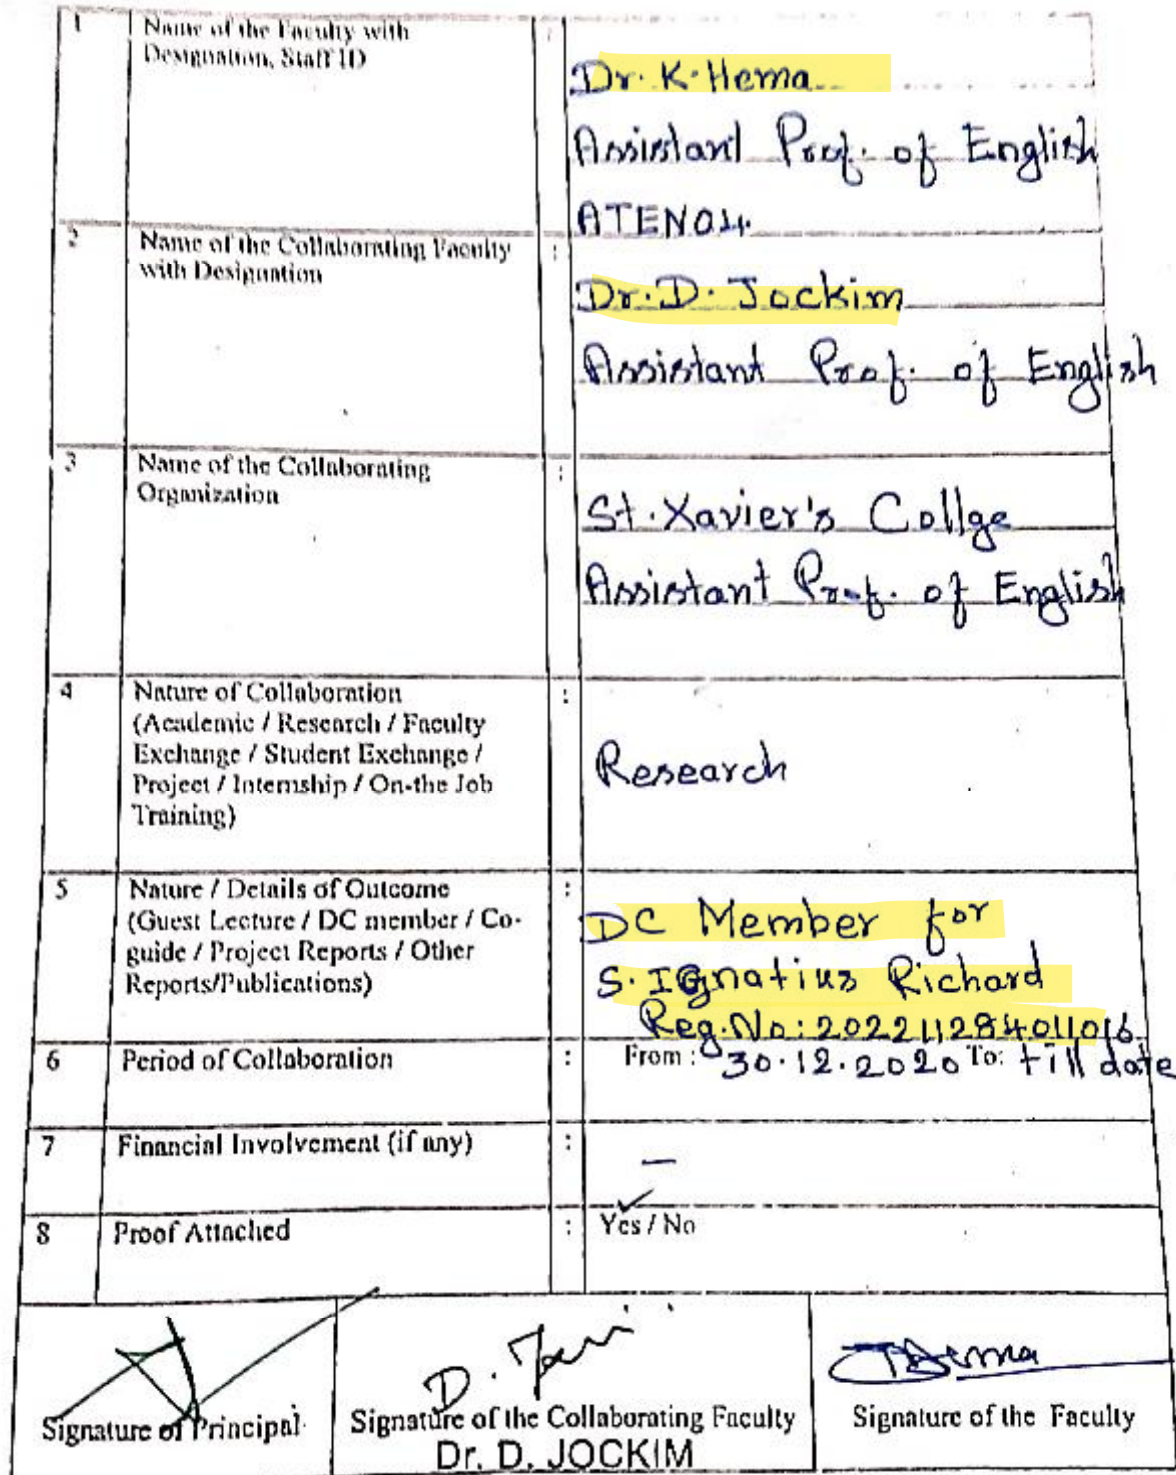 1 Name of the Faculty with : Dr. K. Hema
Designation, Staff ID
Assistant Prof. of English
ATEN04.
2 Name of the Collaborating Faculty :
with Designation
Dr. D. Jockim
Assistant Prof. of English
3 Name of the Collaborating :
Organization
St. Xavier's Collge
Assistant Prof. of English
4 Nature of Collaboration :
(Academic / Research / Faculty
Exchange / Student Exchange /
Project / Internship / On-the Job
Training)
Research
5 Nature / Details of Outcome :
(Guest Lecture / DC member / Co-
guide / Project Reports / Other
Reports/Publications)
DC Member for
S. IGnatius Richard
Reg. No: 20221128401106
6 Period of Collaboration : From: 30.12.2020 To: till date
7 Financial Involvement (if any) : —
8 Proof Attached : Yes / No
D.
Signature of Principal
Signature of the Collaborating Faculty
Dr. D. JOCKIM
Hema
Signature of the Faculty